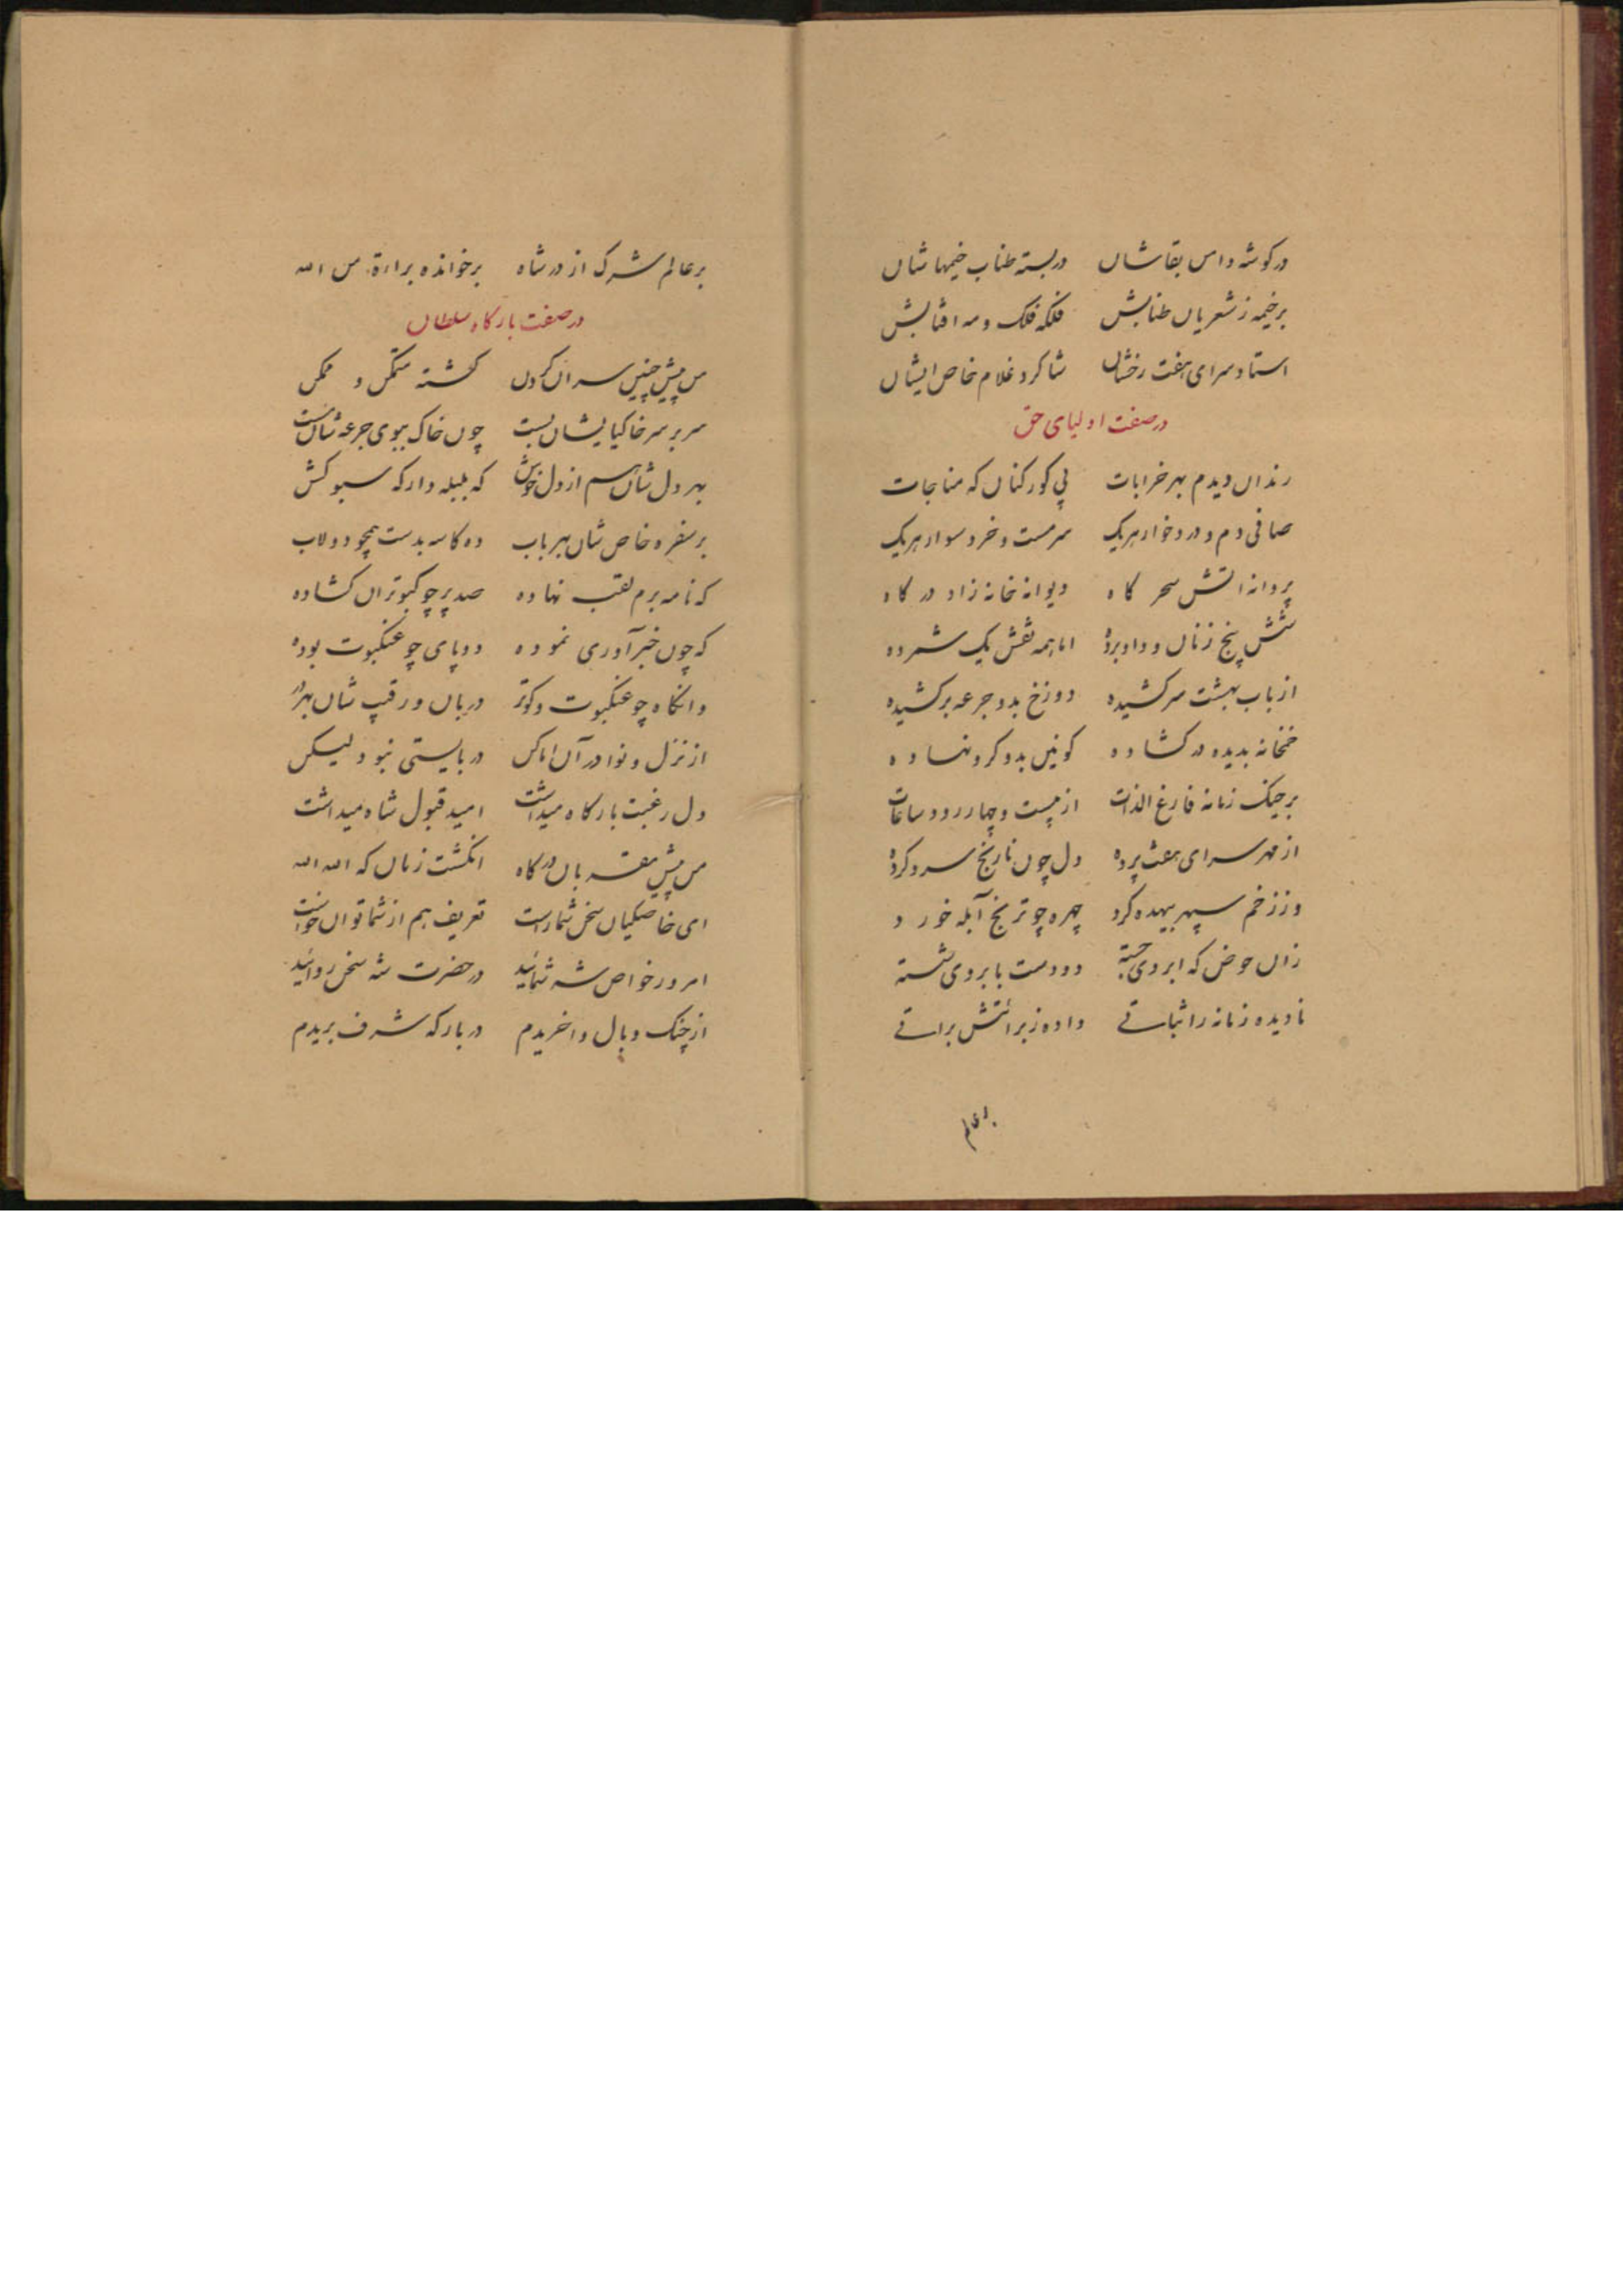 در گوشه دامن بقاشان دربسته طناب خیمهاشان
بر خیمه ز شعریان طنابش فلکه فلک و مه افتابش
استاد سرای هفت رخشان شاکرد غلام خاص ایشان
در صفت اولیای حق
رندان دیدم بهر خرابات پی کور کنان که مناجات
صافی دم و درد خوار هریک سرمست و خرد سوار هریک
پروانه اتش سحر کاه دیوانه خانه زاد در کاه
شش پنج زنان و داو برده اما همه نقش یک شمرده
از باب بهشت سر کشیده دوزخ بدو جرعه برکشیده
خمخانه بدیده در کشاده کونین بدو کرو نهاده
بر جنک زمانه فارغ الذات از بیست و چهار رود ساعات
از مهر سرای هفت پرده دل چون نارنج سرد کرده
وز زخم سپهر بیهده کرد چهره چو ترنج آبله خورد
زان حوض که ابروی جسته دو دست بابروی شسته
نادیده زمانه را ثباتے داده ز براتش براتے
بر عالم شرک از در شاه برخوانده براءة من الله
در صفت بارکاه سلطان
من پیش چنین سران کردن کشته متمکن و ممکن
سر بر سر خاکیا یشان بست چون خاک ببوی جرعه شان مست
بهر دل شان هم از دل خوش که بلبله دار که سبو کش
بر سفره خاص شان بهر باب ده کاسه بدست همچو دولاب
که نامه برم لقب نهاده صد پر چو کبوتران کشاده
که چون خبر آوری نموده دو پای چو عنکبوت بوده
وانکاه چو عنکبوت و کوتر دربان و رقیب شان بهر در
از نزل و نوا در آن اماکن دربایستی نبود لیکن
دل رغبت بارکاه میداشت امید قبول شاه میداشت
من پیش مقربان درکاه انکشت زنان که الله الله
ای خاصکیان سخن شماراست تعریف هم از شما توان خواست
امروز خواص شه شمائید در حضرت شه سخن روائید
از چنک وبال واخریدم در بارکه شرف بریدم